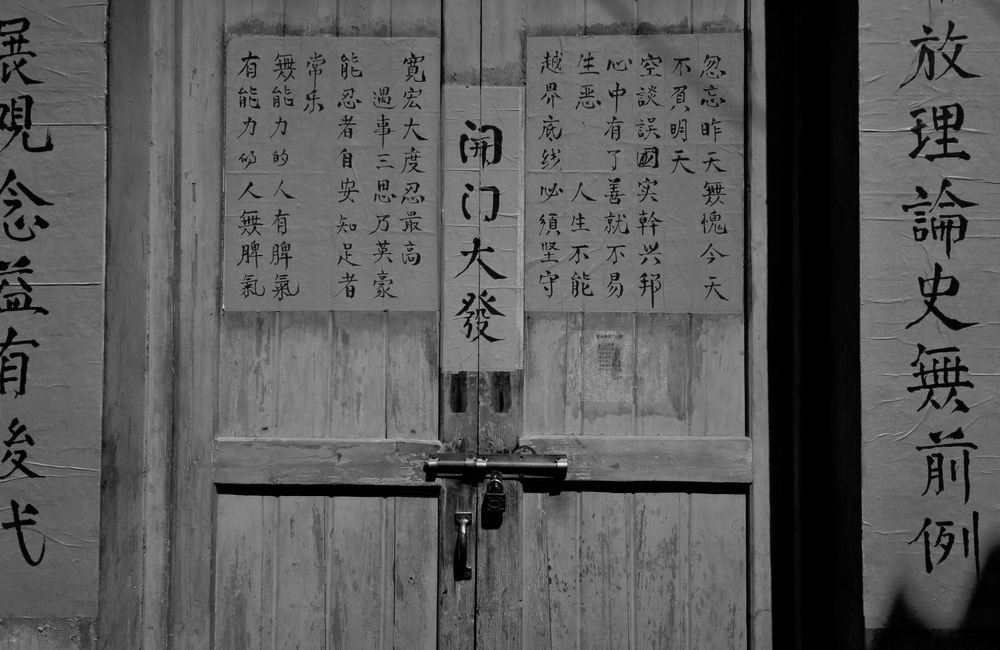 放理論史無前例
忽忘昨天無愧今天
不負明天
空談誤國实幹兴邦
心中有了善就不易
生恶 人生不能
越界底线必須坚守
開门大發
寬宏大度忍最高
遇事三思乃英豪
能忍者自安知足者
常乐
無能力的人有脾氣
有能力的人無脾氣
展覌念益有後代